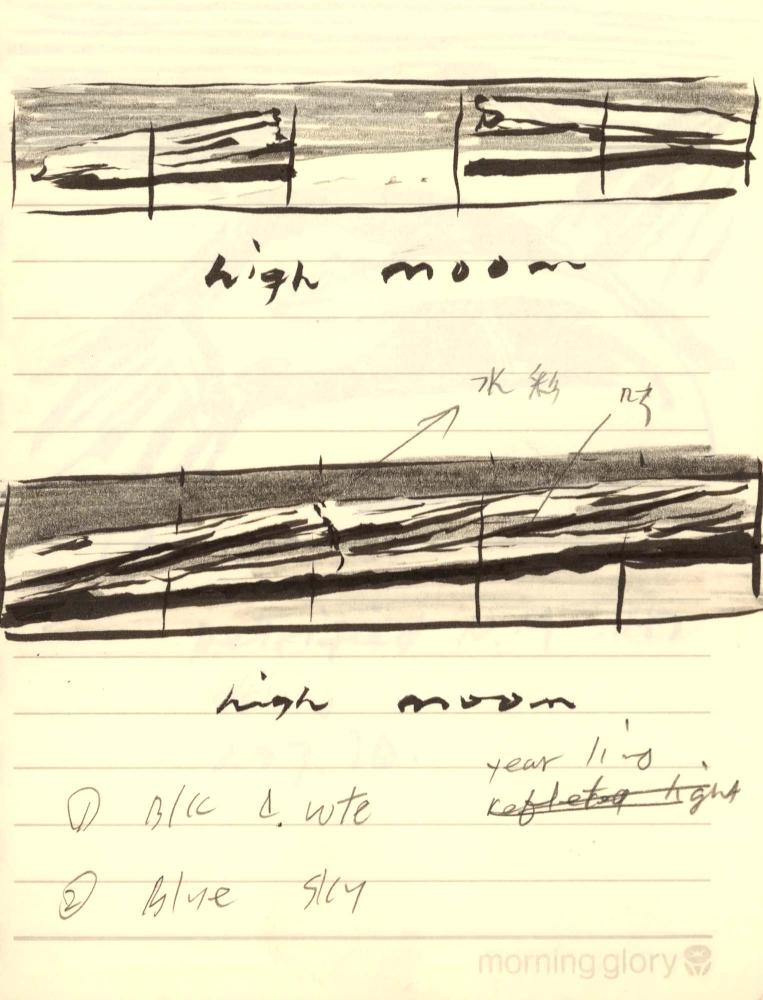 high moon
水彩
high moon
year line
reflected light
① Blk & wte
② Blue sky
morning glory